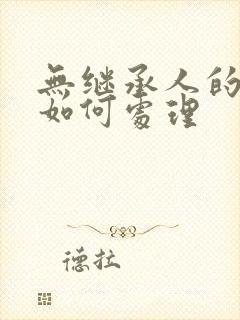 無继承人的
如何處理
德拉